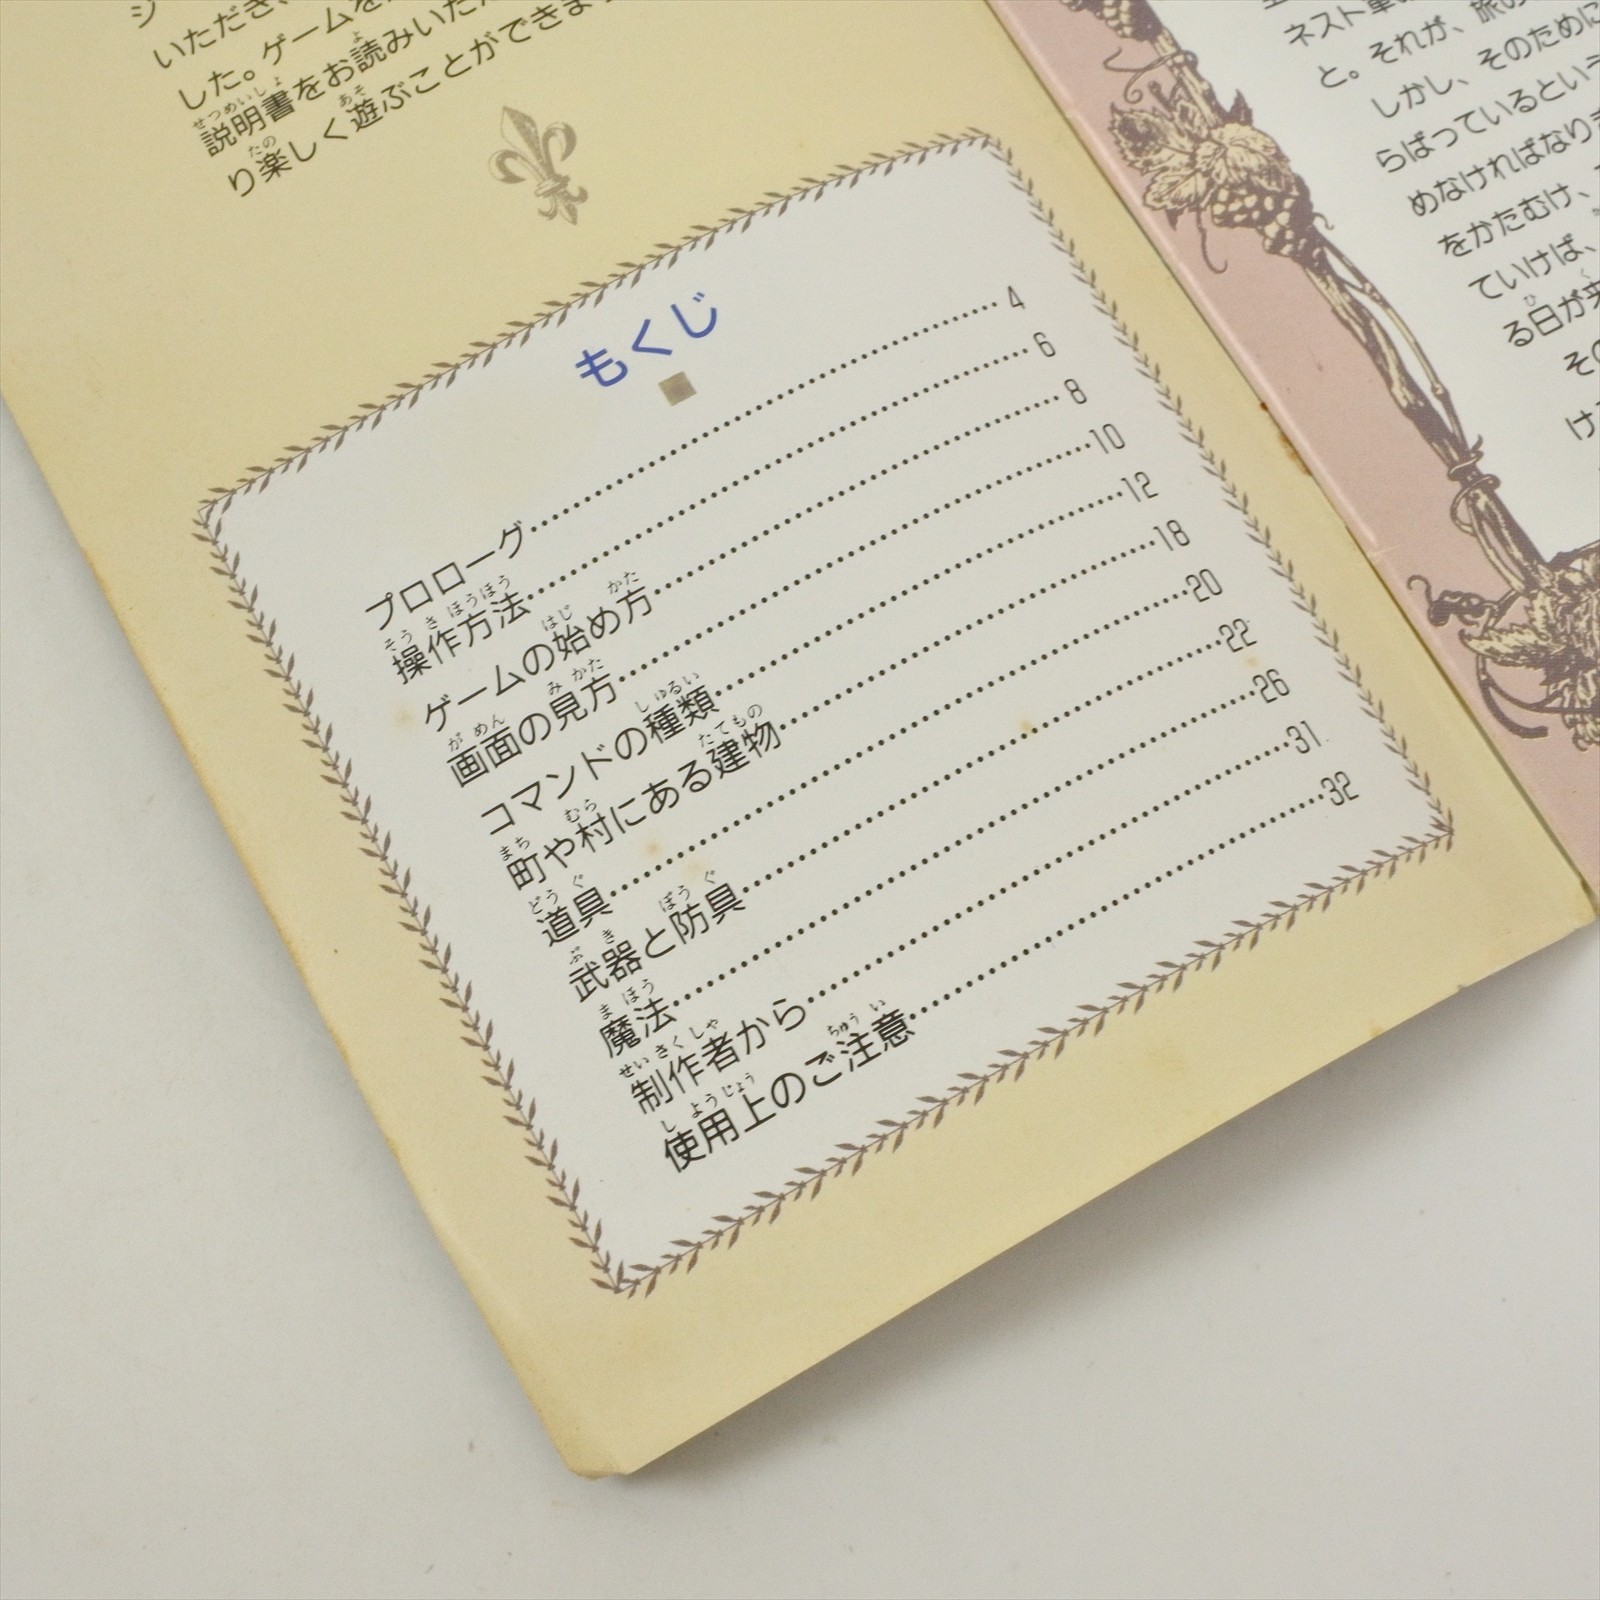 いただき、
した。ゲームを
説明書をお読みいただ
り楽しく遊ぶことができま
もくじ
プロローグ……4
操作方法……6
ゲームの始め方……8
画面の見方……10
コマンドの種類……12
町や村にある建物……18
道具……20
武器と防具……22
魔法……26
制作者から……31
使用上のご注意……32
ネスト軍
と。それが、旅の
しかし、そのために
らばっているという
めなければなり
をかたむけ、
ていけば、
る日が来
その
け